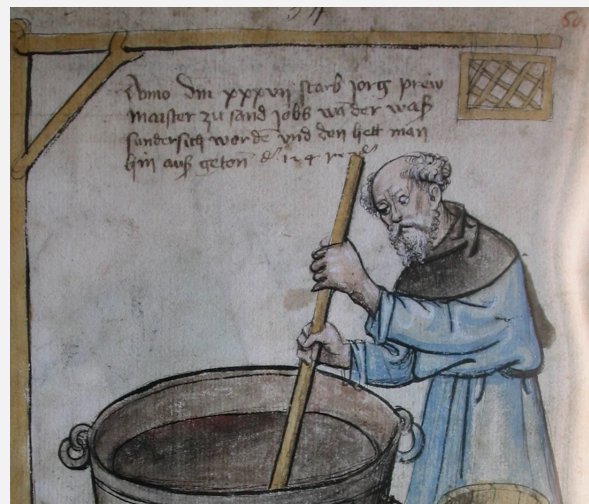 Anno dm xxxvij starb jorg prew
maister zu sand jobs wan der waß
sundersich worde vnd den hett man
hin auß geton
60